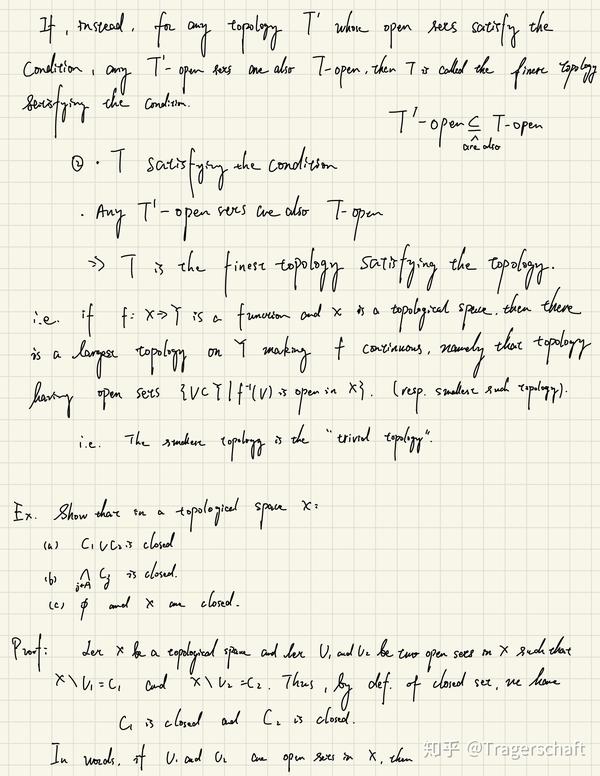 If, instead, for any topology T' whose open sets satisfy the
Condition, any T'-open sets are also T-open, then T is called the finest topology
satisfying the condition.
T'-open ⊆ T-open
are also
② · T satisfying the condition
· Any T'-open sets are also T-open
=> T is the finest topology satisfying the topology.
i.e. if f: X→Y is a function and X is a topological space, then there
is a largest topology on Y making f continuous, namely that topology
having open sets {V⊂Y | f⁻¹(V) is open in X}. (resp. smallest such topology).
i.e. The smallest topology is the "trivial topology".
Ex. Show that in a topological space X:
(a) C₁∪C₂ is closed
(b) ∩ Cⱼ is closed.
j∈A
(c) ∅ and X are closed.
Proof: Let X be a topological space and let U₁ and U₂ be two open sets in X such that
X\U₁=C₁ and X\U₂=C₂. Thus, by def. of closed set, we have
C₁ is closed and C₂ is closed.
In words, if U₁ and U₂ are open sets in X, then
知乎 @Tragerschaft